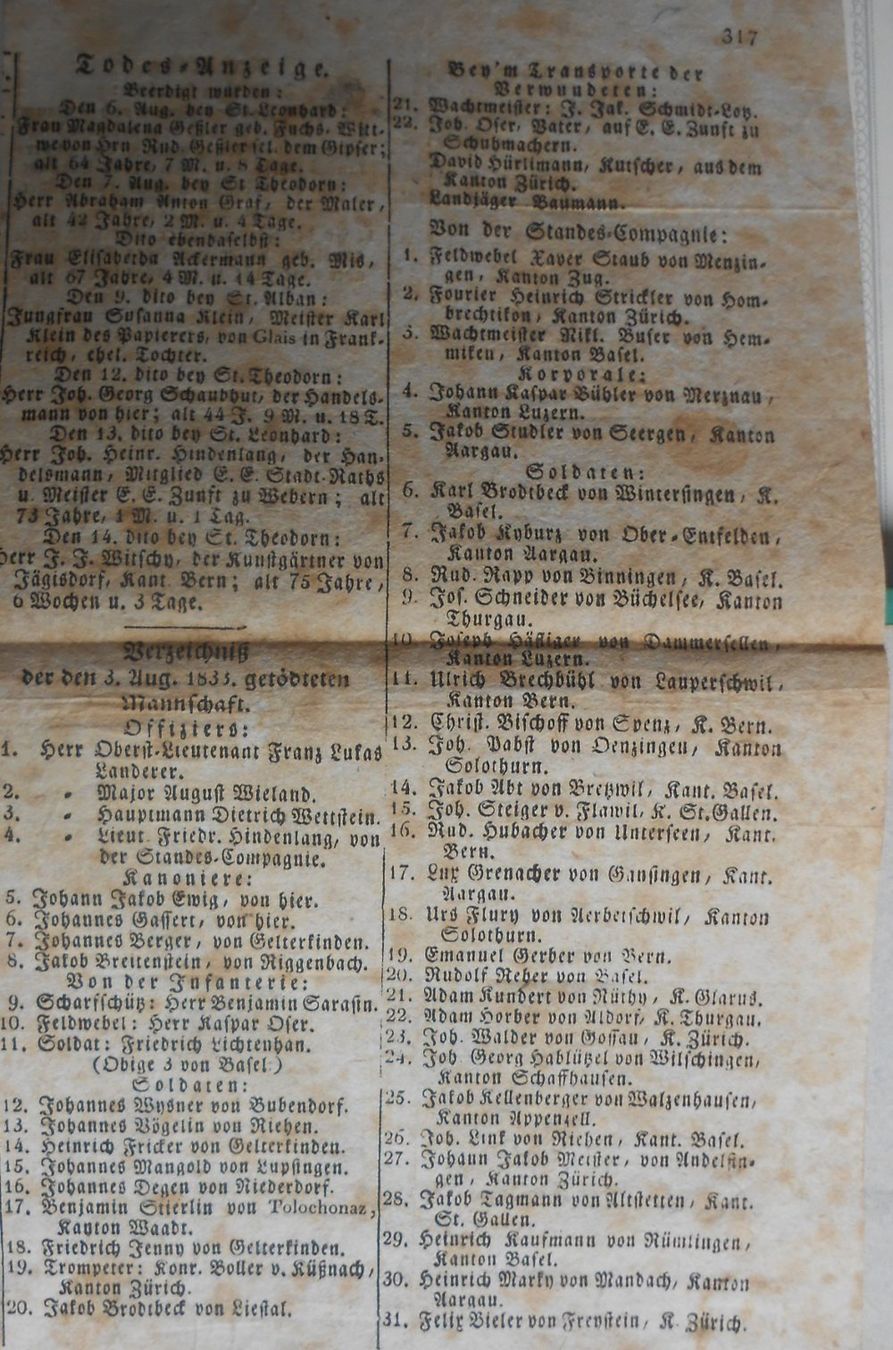 317
Todes-Anzeige.
Beerdigt wurden:
Den 6. Aug. bey St. Leonhard:
Frau Magdalena Geßler geb. Fuchs, Witt-
we von Hrn Rud. Geßler sel. dem Gipser;
alt 64 Jahre, 7 M. u. 8 Tage.
Den 7. Aug. bey St Theodorn:
Herr Abraham Anton Graf, der Maler,
alt 42 Jahre, 2 M. u. 4 Tage.
Dito ebendaselbst:
Frau Elisabetha Ackermann geb. Mis,
alt 67 Jahre, 4 M. u. 14 Tage.
Den 9. dito bey St. Alban:
Jungfrau Susanna Klein, Meister Karl
Klein des Papierers, von Glais in Frank-
reich, ehel. Tochter.
Den 12. dito bey St. Theodorn:
Herr Joh. Georg Schaubhut, der Handels-
mann von hier; alt 44 J. 9 M. u. 18 T.
Den 13. dito bey St. Leonhard:
Herr Joh. Heinr. Hindenlang, der Han-
delsmann, Mitglied E. E. Stadt-Raths
u. Meister E. E. Zunft zu Webern; alt
73 Jahre, 1 M. u. 1 Tag.
Den 14. dito bey St. Theodorn:
Herr J. J. Witschy, der Kunstgärtner von
Jägisdorf, Kant. Bern; alt 75 Jahre,
6 Wochen u. 3 Tage.
Verzeichniß
der den 3. Aug. 1833. getödteten
Mannschaft.
Offiziers:
1. Herr Oberst-Lieutenant Franz Lukas
Landerer.
2. „ Major August Wieland.
3. „ Hauptmann Dietrich Wettstein.
4. „ Lieut. Friedr. Hindenlang, von
der Standes-Compagnie.
Kanoniere:
5. Johann Jakob Ewig, von hier.
6. Johannes Gassert, von hier.
7. Johannes Berger, von Gelterkinden.
8. Jakob Breitenstein, von Riggenbach.
Von der Infanterie:
9. Scharfschütz: Herr Benjamin Sarasin.
10. Feldwebel: Herr Kaspar Oser.
11. Soldat: Friedrich Lichtenhan.
(Obige 3 von Basel.)
Soldaten:
12. Johannes Wysner von Bubendorf.
13. Johannes Vögelin von Riehen.
14. Heinrich Fricker von Gelterkinden.
15. Johannes Mangold von Lupsingen.
16. Johannes Degen von Niederdorf.
17. Benjamin Stierlin von Tolochonaz,
Kanton Waadt.
18. Friedrich Jenny von Gelterkinden.
19. Trompeter: Konr. Boller v. Küßnach,
Kanton Zürich.
20. Jakob Brodtbeck von Liestal.
Bey'm Transporte der
Verwundeten:
21. Wachtmeister: J. Jak. Schmidt-Loy.
22. Joh. Oser, Vater, auf E. E. Zunft zu
Schuhmachern.
David Hürlimann, Kutscher, aus dem
Kanton Zürich.
Landjäger Baumann.
Von der Standes-Compagnie:
1. Feldwebel Xaver Staub von Menzin-
gen, Kanton Zug.
2. Fourier Heinrich Strickler von Hom-
brechtikon, Kanton Zürich.
3. Wachtmeister Nikl. Buser von Hem-
miken, Kanton Basel.
Korporale:
4. Johann Kaspar Bühler von Merznau,
Kanton Luzern.
5. Jakob Studler von Seergen, Kanton
Aargau.
Soldaten:
6. Karl Brodtbeck von Wintersingen, K.
Basel.
7. Jakob Kyburz von Ober-Entfelden,
Kanton Aargau.
8. Rud. Rapp von Binningen, K. Basel.
9. Jos. Schneider von Büchelsee, Kanton
Thurgau.
10. Joseph Häfliger von Dammersellen,
Kanton Luzern.
11. Ulrich Brechbühl von Lauperschwil,
Kanton Bern.
12. Christ. Bischoff von Spenz, K. Bern.
13. Joh. Pabst von Oenzingen, Kanton
Solothurn.
14. Jakob Abt von Bretzwil, Kant. Basel.
15. Joh. Steiger v. Flawil, K. St.Gallen.
16. Rud. Hubacher von Unterseen, Kant.
Bern.
17. Lux Grenacher von Gansingen, Kant.
Aargau.
18. Urs Flury von Aerbetschwil, Kanton
Solothurn.
19. Emanuel Gerber von Bern.
20. Rudolf Neher von Basel.
21. Adam Kundert von Rüthy, K. Glarus.
22. Adam Horber von Aldorf, K. Thurgau.
23. Joh. Walder von Gossau, K. Zürich.
24. Joh Georg Hablützel von Wilschingen,
Kanton Schaffhausen.
25. Jakob Kellenberger von Walzenhausen,
Kanton Appenzell.
26. Joh. Link von Riehen, Kant. Basel.
27. Johann Jakob Meister, von Andelfin-
gen, Kanton Zürich.
28. Jakob Tagmann von Altstetten, Kant.
St. Gallen.
29. Heinrich Kaufmann von Rümlingen,
Kanton Basel.
30. Heinrich Marky von Mandach, Kanton
Aargau.
31. Felix Bieler von Freystein, K. Zürich.